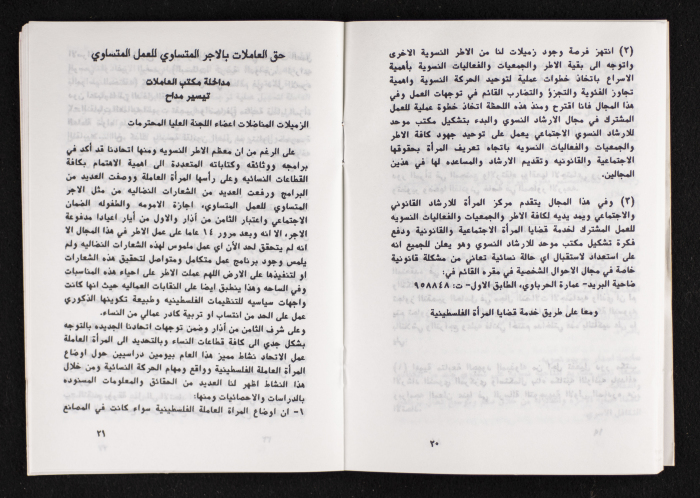 (٢) انتهز فرصة وجود زميلات لنا من الاطر النسوية الاخرى
واتوجه الى بقية الاطر والجمعيات والفعاليات النسوية بأهمية
الاسراع باتخاذ خطوات عملية لتوحيد الحركة النسوية واهمية
تجاوز الفئوية والتجزؤ والتضارب القائم في توجهات العمل وفي
هذا المجال فانا اقترح ومنذ هذه اللحظة اتخاذ خطوة عملية للعمل
المشترك في مجال الارشاد النسوي والبدء بتشكيل مكتب موحد
للارشاد النسوي الاجتماعي يعمل على توحيد جهود كافة الاطر
والجمعيات والفعاليات النسويه باتجاه تعريف المرأة بحقوقها
الاجتماعية والقانونيه وتقديم الارشاد والمساعده لها في هذين
المجالين.
(٣) وفي هذا المجال يتقدم مركز المرأة للارشاد القانوني
والاجتماعي ويمد يديه لكافة الاطر والجمعيات والفعاليات النسويه
للعمل المشترك لخدمة قضايا المرأة الاجتماعية والقانونية ودفع
فكرة تشكيل مكتب موحد للارشاد النسوي وهو يعلن للجميع انه
على استعداد لاستقبال اي حالة نسائية تعاني من مشكلة قانونية
خاصة في مجال الاحوال الشخصية في مقره القائم في:
ضاحية البريد- عمارة الحرباوي، الطابق الاول- ت: ٩٥٨٨٤٨
ومعا على طريق خدمة قضايا المرأة الفلسطينية
٢٠
حق العاملات بالاجر المتساوي للعمل المتساوي
مداخلة مكتب العاملات
تيسير مداح
الزميلات المناضلات اعضاء اللجنة العليا المحترمات
على الرغم من ان معظم الاطر النسويه ومنها اتحادنا قد أكد في
برامجه ووثائقه وكتاباته المتعددة الى اهمية الاهتمام بكافة
القطاعات النسائيه وعلى رأسها المرأة العاملة ووضعت العديد من
البرامج ورفعت العديد من الشعارات النضاليه من مثل الاجر
المتساوي للعمل المتساوي، اجازة الامومه والطفوله الضمان
الاجتماعي واعتبار الثامن من أذار والاول من أيار اعيادا مدفوعة
الاجر، الا انه وبعد مرور ١٤ عاما على عمل الاطر في هذا المجال الا
انه لم يتحقق لحد الأن اي عمل ملموس لهذه الشعارات النضاليه ولم
يلمس وجود برنامج عمل متكامل ومتواصل لتحقيق هذه الشعارات
او لتنفيذها على الارض اللهم عملت الاطر على احياء هذه المناسبات
وفي الساحه وهذا ينطبق ايضا على النقابات العماليه حيث انها كانت
واجهات سياسيه للتنظيمات الفلسطينيه وطبيعة تكوينها الذكوري
عمل على الحد من انتساب او تربية كادر عمالي من النساء.
وعلى شرف الثامن من أذار وضمن توجهات اتحادنا الجديده بالتوجه
بشكل جدي الى كافة قطاعات النساء وبالتحديد الى المرأة العاملة
عمل الاتحاد نشاط مميز هذا العام بيومين دراسيين حول اوضاع
المرأة العاملة الفلسطينية وواقع ومهام الحركة النسائية ومن خلال
هذا النشاط اظهر لنا العديد من الحقائق والمعلومات المسنوده
بالدراسات والاحصائيات ومنها:
١- ان اوضاع المرأة العاملة الفلسطينية سواء كانت في المصانع
٢١